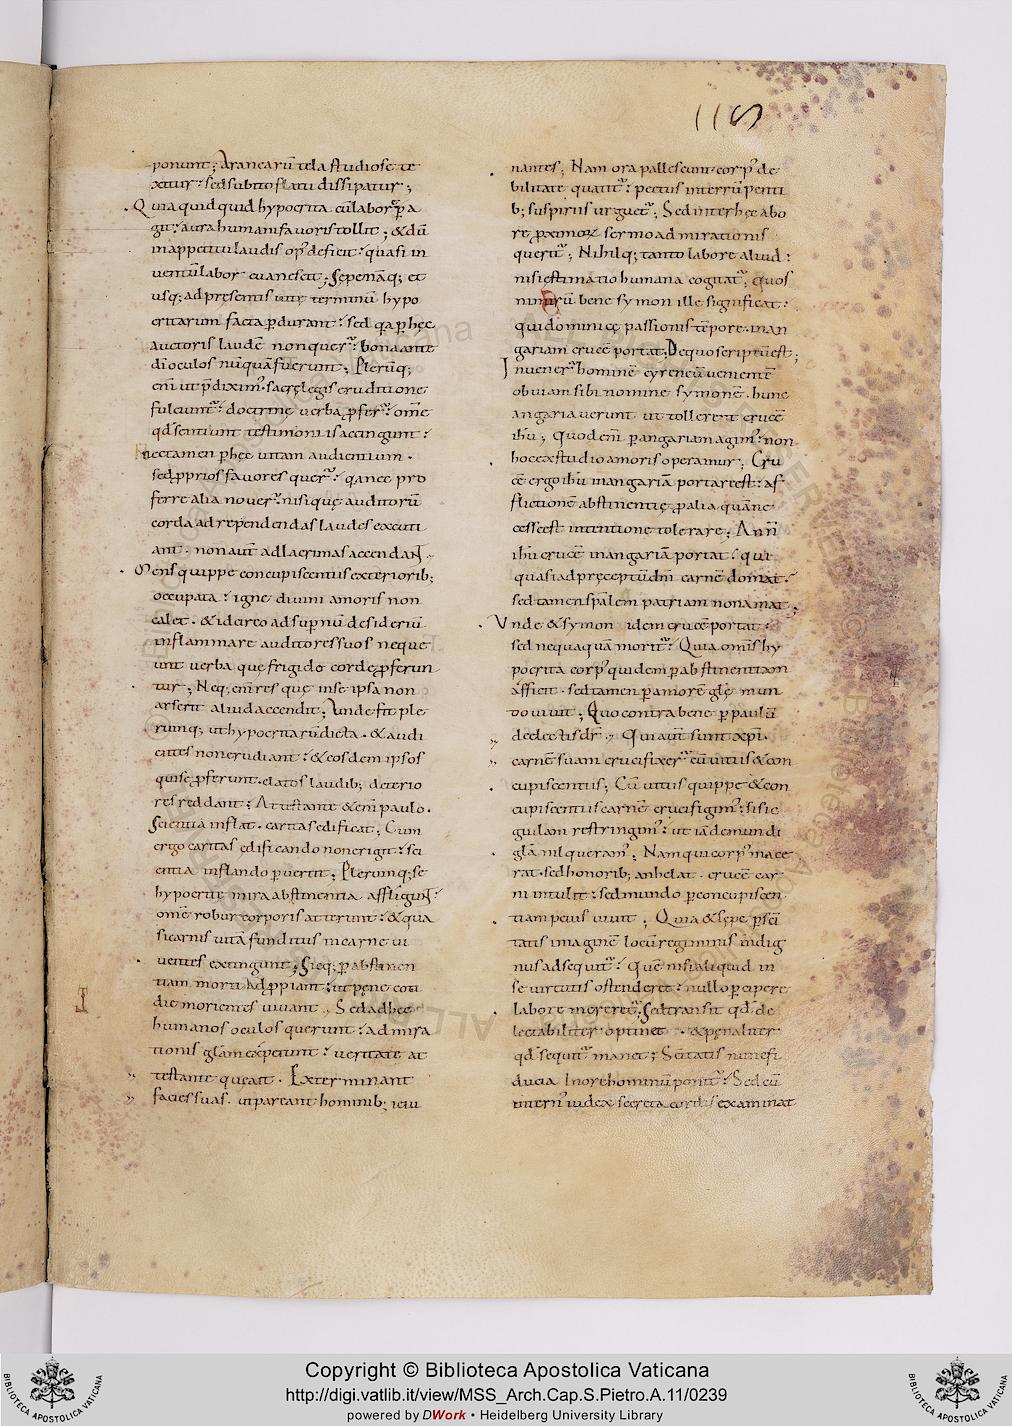 115
ponunt; Aranearū tela studiose te
xitur: sed subito flatu dissipatur;
Quia quid quid hypocrita cū labore ꝑa
git: aura humani favoris tollit; & dū
in appetitu laudis op' deficit: quasi in
ventū labor evanescit; Sepe namq; et
usq; ad presentis vitę terminū hypo
critarum facta ꝑdurant: sed q̄a ꝑ hęc
auctoris laudē non querunt: bona ante
dī oculos nūquā fuerunt; Plerūq;
enī ut p̄diximus sacrę legis eruditione
fulciunt': doctrinę verba ꝓferunt: omē
qd̄ sentiunt testimoniis accingunt:
nec tamen ꝑ hęc vitam audientium.
sed ꝓprios favores querunt: q̄a nec pro
ferre alia noverunt: nisi quę auditorū
corda ad rependendas laudes excuti
ant. non aut̄ ad lacrimas accendant.
Mens quippe concupiscentiis exteriorib;
occupata: igne divini amoris non
calet. & idcirco ad supnū desideriū
inflammare auditores suos neque
unt verba quę frigido corde ꝓferun
tur; Neq; enī res quę in se ipsa non
arserit aliud accendit; Unde fit ple
rumq; ut hypocritarū dicta. & audi
entes non erudiant: & eosdem ipsos
qui se ꝓferunt. elatos laudib; deterio
res reddant; Attestante & enī paulo.
Scientia inflat. caritas edificat; Cum
ergo caritas edificando non erigit: sci
entia inflando ꝑvertit; Plerumq; se
hypocritę mira abstinentia affligunt:
omē robur corporis atterunt: & qua
si carnis vitā funditus in carne vi
ventes extingunt; Sicq; ꝑ abstinen
tiam morti adꝓpiant: ut pęne coti
die morientes vivant. Sed ad hęc
humanos oculos querunt: admira
tionis glām expetunt: veritate at
testante que ait. Exterminant
facies suas. ut pareant hominib; ieiu
nantes; Nam ora pallescunt. corp' de
bilitate quatit': pectus interrūpenti
b; suspiriis urguet'; Sed inter hęc abo
re ꝓximoꝝ sermo admirationis
querit'; Nihilq; tanto labore aliud:
nisi estimatio humana cogitat'; quos
nimirū bene symon ille significat:
qui dominicę passionis tēpore. in an
gariam crucē portat; De quo scriptū est;
Invener' hominē cyreneū venientē
obviam sibi nomine symonē. hunc
angariaverunt ut tolleret crucē
ihū; Quod enī ꝑ angariam agim': non
hoc ex studio amoris operamur; Cru
cē ergo ihū in angariā portare est: af
flictionē abstinentię ꝑ alia quā ne
cesse est intentione tolerare; An nī
ihū crucē in angariā portat: qui
quasi ad pręceptū dnī carnē domat:
sed tamen spālem patriam non amat;
Unde & symon idem crucē portat:
sed nequaquā morit': Quia omīs hy
pocrita corp' quidem ꝑ abstinentiam
afficit. sed tamen ꝑ amorē glę mun
do vivit; Quo contra bene ꝑ paulū
de electis dr̄. Qui aut̄ sunt xpī.
carnē suam crucifixer' cū vitiis & con
cupiscentiis; Cū vitiis quippe & con
cupiscentiis carnē crucifigim': si sic
gulam restringim': ut iā de mundi
glā nil queram'; Nam qui corp' mace
rat. sed honorib; anhelat. crucē car
ni intulit: sed mundo ꝑ concupiscen
tiam peius vivit; Quia & sępe ꝑ sci
tatis imaginē locū regiminis indig
nus adsequit': Quē nisi aliquid in
se virtutis ostenderet: nullo ꝑciperet
labore meretur; Sed transit qd̄ de
lectabiliter optinet. & penaliter
qd̄ sequit' manet; Scitatis nunc fi
ducia in ore hominū ponit': Sed cū
intern' iudex secreta cordis examinat
Copyright © Biblioteca Apostolica Vaticana
http://digi.vatlib.it/view/MSS_Arch.Cap.S.Pietro.A.11/0239
powered by DWork • Heidelberg University Library
BIBLIOTECA APOSTOLICA VATICANA
BIBLIOTECA APOSTOLICA VATICANA